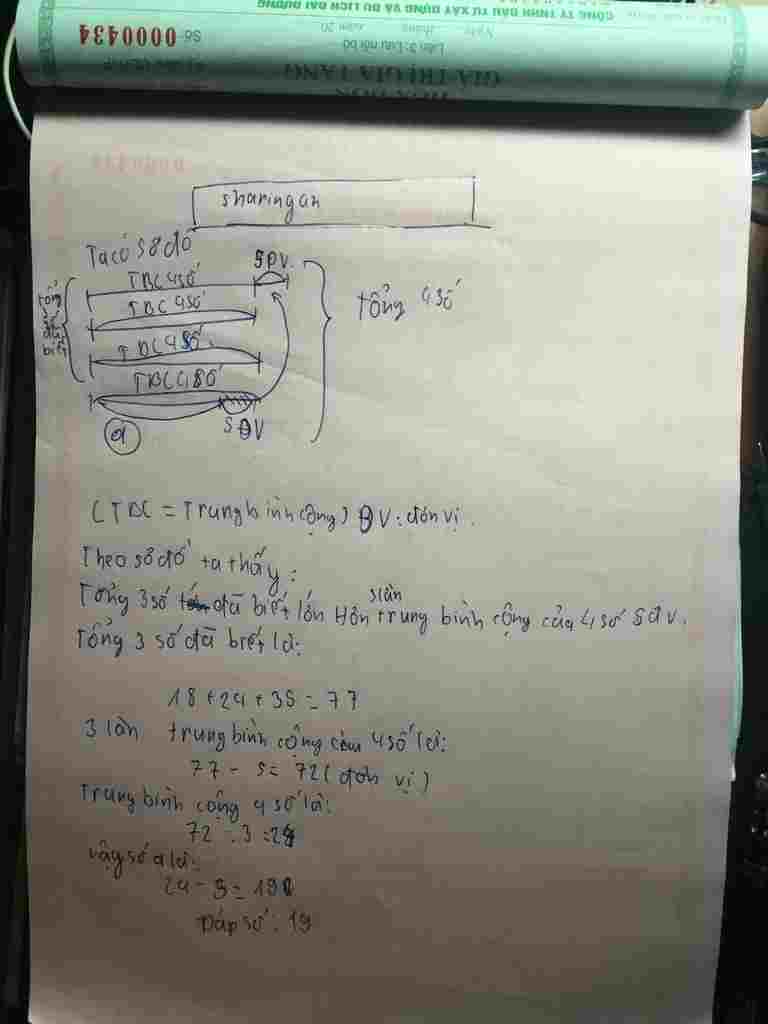 CÔNG TY TNHH ĐẦU TƯ XÂY DỰNG VÀ DU LỊCH ĐẠI DƯƠNG
Ngày tháng năm 20
Số: 0000434
Liên 3: Lưu nội bộ
GIÁ TRỊ GIA TĂNG
HÓA ĐƠN
sharingan
Ta có sơ đồ
5ĐV
TBC 4 số
TBC 4 số
TBC 4 số
TBC 4 số
tổng
số
đã
biết
tổng 4 số
a
5 ĐV
(TBC = Trung bình cộng) ĐV: đơn vị.
Theo sơ đồ ta thấy:
3 lần
Tổng 3 số đã biết lớn Hơn trung bình cộng của 4 số 5 đv.
Tổng 3 số đã biết là:
18 + 24 + 35 = 77
3 lần trung bình cộng của 4 số là:
77 - 5 = 72 (đơn vị)
Trung bình cộng 4 số là:
72 : 3 = 24
vậy số a là:
24 - 5 = 19
Đáp số: 19